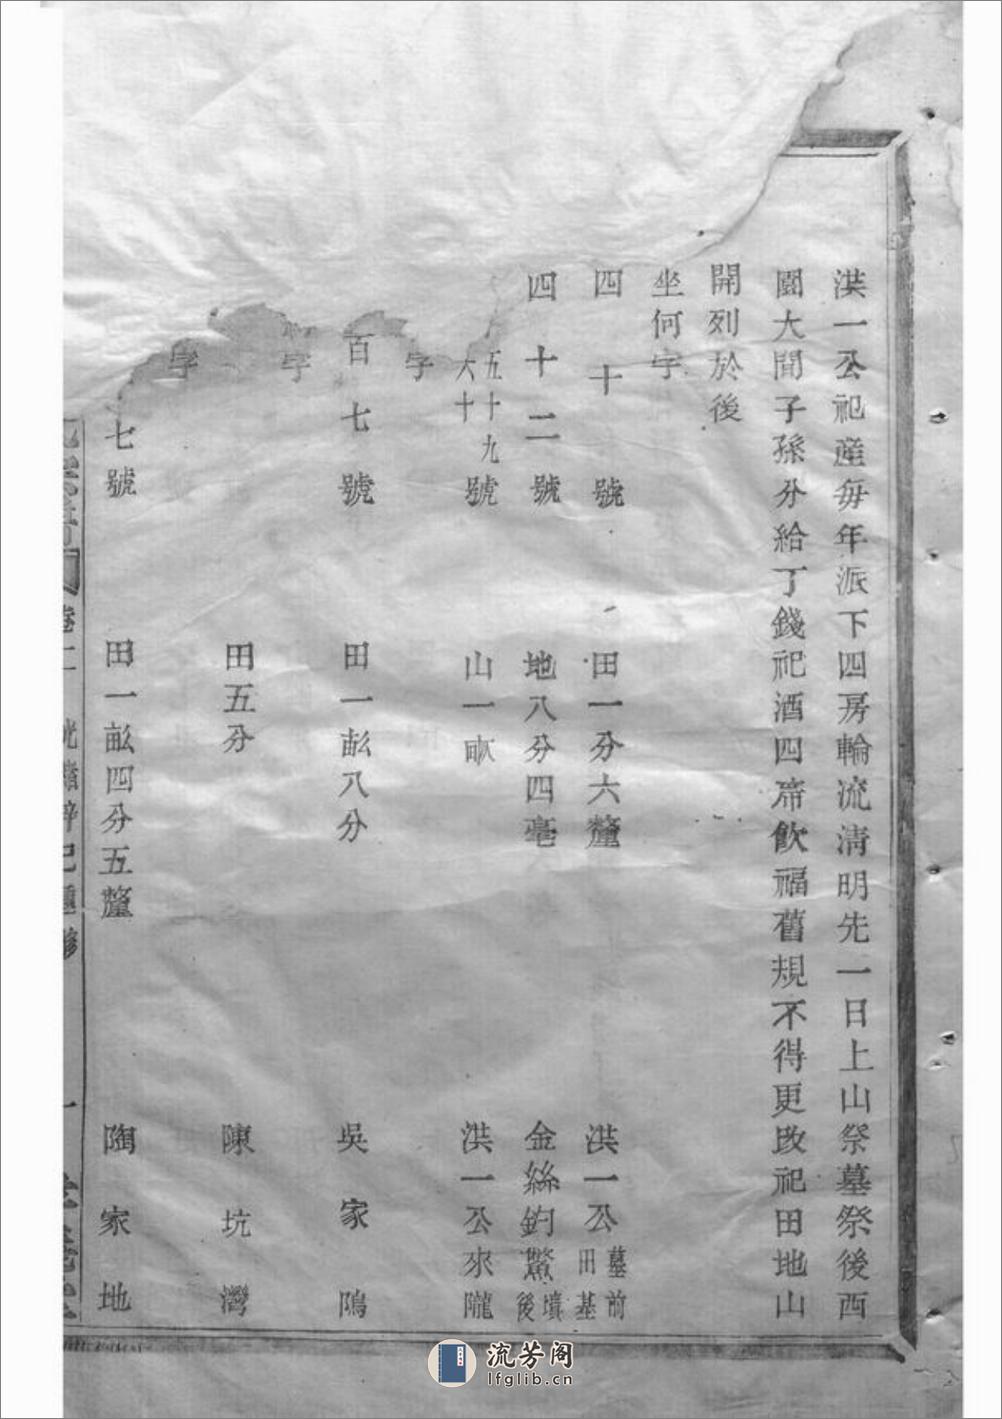 洪一公祀產每年派下四房輪流清明先一日上山祭墓祭後西
園大間子孫分給丁錢祀酒四席飲福舊規不得更改祀田地山
開列於後
坐何字
四十號 田一分六釐 洪一公墓前田基
四十二號 地八分四毫 金絲鈎鰲墳後
五十九六十號 山一畝 洪一公來隴
字
百七號 田一畝八分 吳家隝
字
田五分 陳坑灣
字
七號 田一畝四分五釐 陶家地
卷二 光緒辛巳重修 一
流芳阁
lfglib.cn